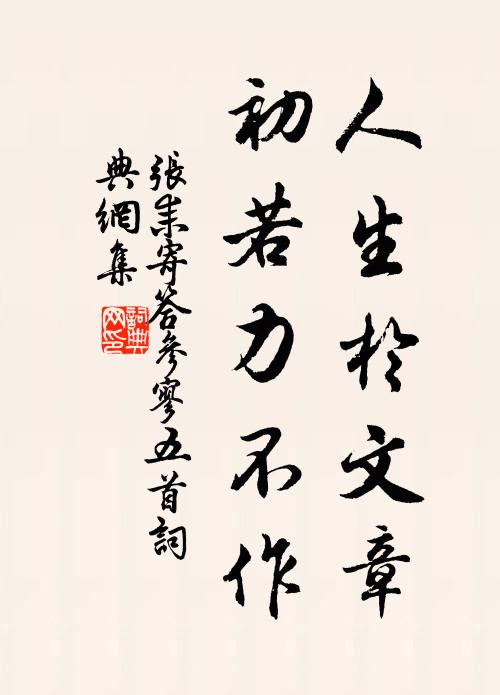 人生於文章
初若力不作
張耒寄答參寥五首詞
典網集
詞典网印